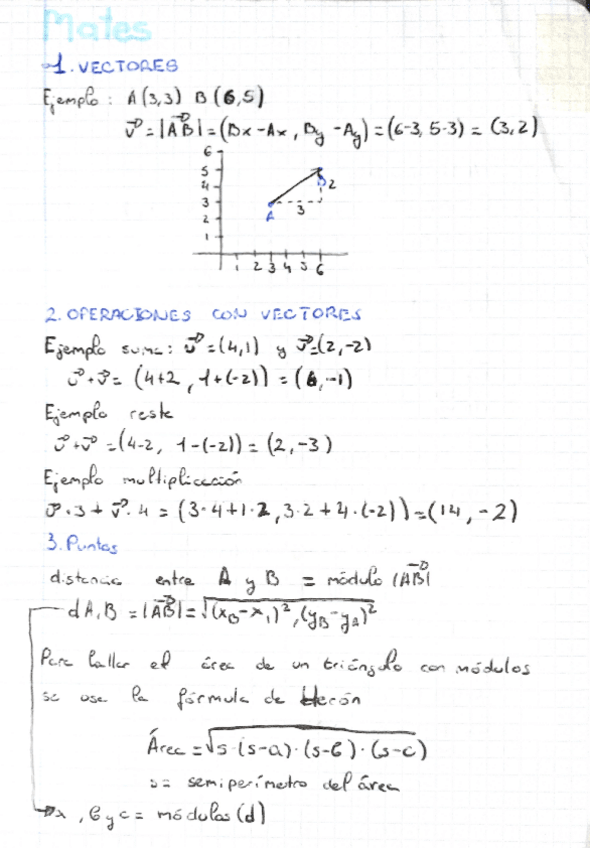 Mates
1. VECTORES
Ejemplo: A(3,3) B(6,5)
v⃗=|AB⃗|=(Bx-Ax, By-Ay)=(6-3, 5-3)=(3,2)
6
5
4
3
2
1
A
B
2
3
1 2 3 4 5 6
2. OPERACIONES CON VECTORES
Ejemplo suma: u⃗=(4,1) y v⃗=(2,-2)
u⃗+v⃗=(4+2, 1+(-2))=(6,-1)
Ejemplo resta
u⃗+v⃗=(4-2, 1-(-2))=(2,-3)
Ejemplo multiplicación
u⃗·3+v⃗·4=(3·4+1·2, 3·2+4·(-2))=(14,-2)
3. Puntos
distancia entre A y B = módulo |AB⃗|
dA,B=|AB⃗|=√(xB-x1)²,(yB-yA)²
Para hallar el área de un triángulo con módulos
se usa la fórmula de Herón
Área=√s·(s-a)·(s-b)·(s-c)
s= semiperímetro del área
a, b y c= módulos(d)